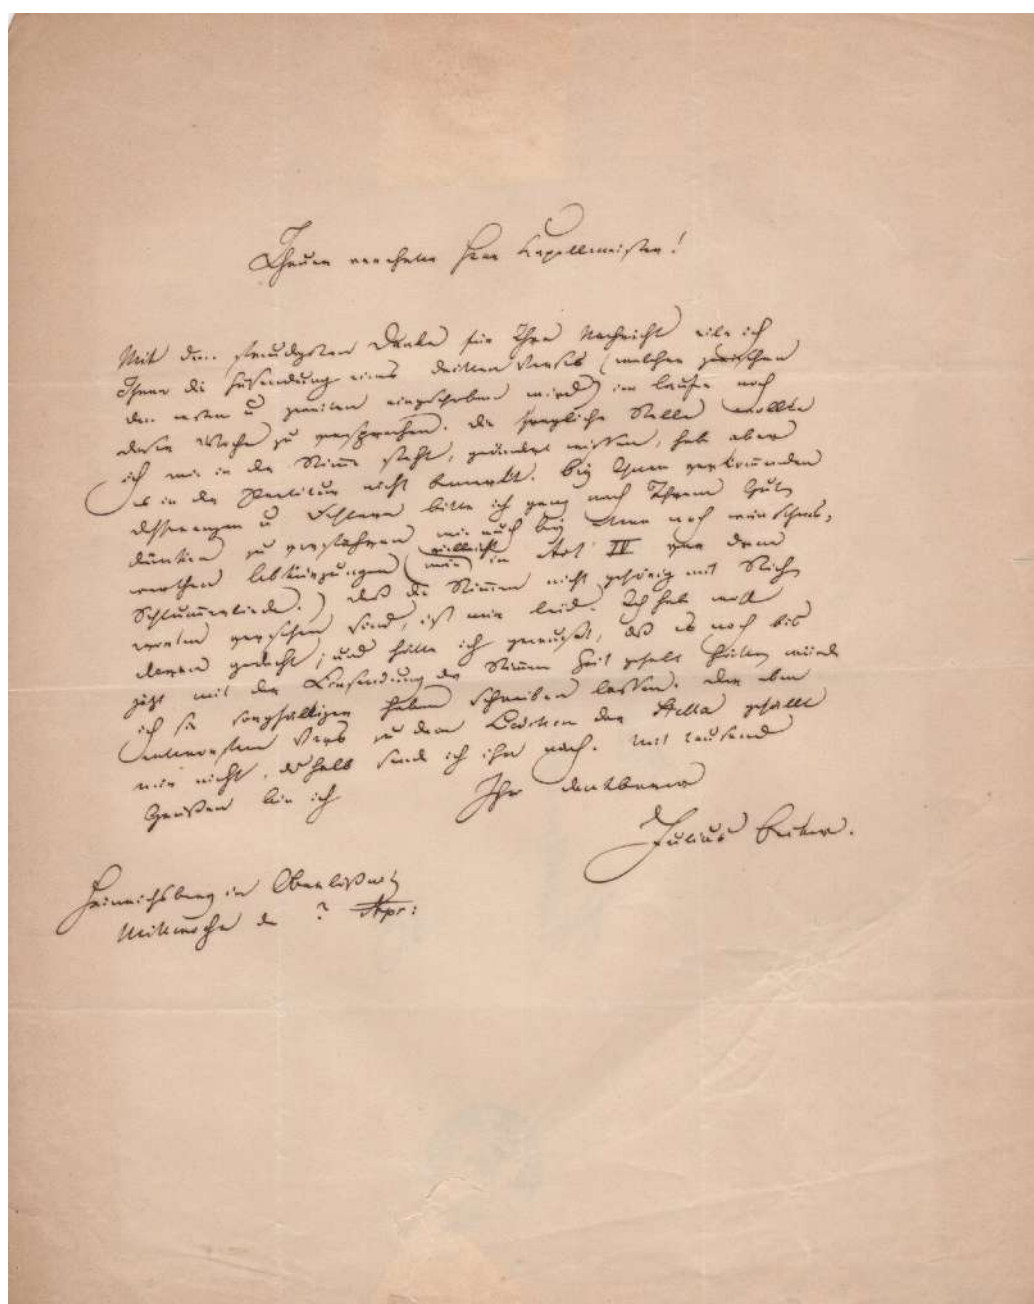 Theurer verehrter Herr Kapellmeister!
Mit dem freudigsten Danke für Ihre Nachricht eile ich
Ihnen die Zusendung eines dritten Verses (welcher zwischen
den ersten u zweiten eingeschoben wird) im Laufe noch
dieser Woche zu versprechen. Die fragliche Stelle wollte
ich wie in der Stimme steht, geändert wissen, hab aber
es in der Partitur nicht bemerkt. Bei Ihnen vorkommenden
Differenzen u Fehlern bitte ich ganz nach Ihrem Gut-
dünken zu verfahren wie auch bei etwa noch wünschens-
werthen Abkürzungen (vielleicht in Act IV vor dem
Schlummerliede.) Daß die Stimmen nicht gehörig mit Stich
worten versehen sind, ist mir leid. Ich hab wohl
daran gedacht, und hätte ich gewußt, daß es noch bis
jetzt mit der Einsendung der Stimmen Zeit gehabt hätte, würde
ich sie sorgfältiger haben schreiben lassen. Der eben
entworfene Vers zu dem Liedchen der Stella gefällt
mir nicht, deshalb sende ich ihn nach. Mit tausend
Grüßen bin ich Ihr dankbarer
Julius Becker.
Heinrichsberg in Oberlößnitz
Mittwochs d ? Apr: